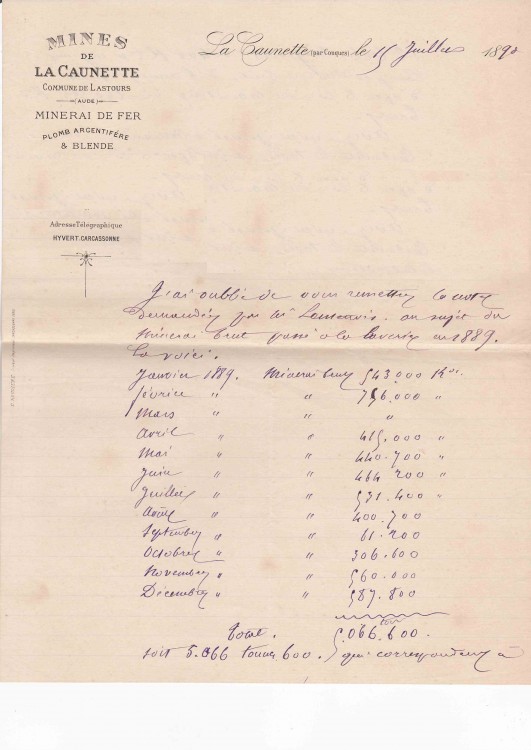 MINES
DE
LA CAUNETTE
COMMUNE DE LASTOURS
(AUDE)
MINERAI DE FER
PLOMB ARGENTIFÈRE
& BLENDE
Adresse Télégraphique
HYVERT. CARCASSONNE
La Caunette (par Conques) le 15 Juillet 1890
J'ai oublié de vous remettre la note
demandée par Mr au sujet du
Minerai brut passé à la laverie en 1889.
La voici.
Janvier 1889. Minerai brut 543.000 Kos
février " " 756.000 "
Mars " " "
Avril " " 415.000 "
Mai " " 440.700 "
Juin " " 464.200 "
Juillet " " 531.400 "
Août " " 400.700
Septembre " " 61.200
Octobre " " 306.600
Novembre " " 560.000
Décembre " " 587.800
ton
total. 5.066.600.
soit 5.066 tonnes 600. qui correspondent à